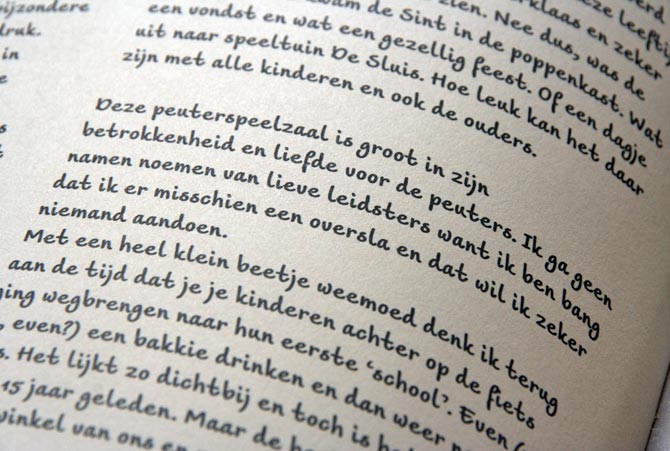 bijzondere
druk.
in
zien. Nee dus, was de
kwam de Sint in de poppenkast. Wat
een vondst en wat een gezellig feest. Of een dagje
uit naar speeltuin De Sluis. Hoe leuk kan het daar
zijn met alle kinderen en ook de ouders.
Deze peuterspeelzaal is groot in zijn
betrokkenheid en liefde voor de peuters. Ik ga geen
namen noemen van lieve leidsters want ik ben bang
dat ik er misschien een oversla en dat wil ik zeker
niemand aandoen.
Met een heel klein beetje weemoed denk ik terug
aan de tijd dat je je kinderen achter op de fiets
ging wegbrengen naar hun eerste ‘school’. Even (
, even?) een bakkie drinken en dan weer
s. Het lijkt zo dichtbij en toch is
15 jaar geleden. Maar de
winkel van ons en